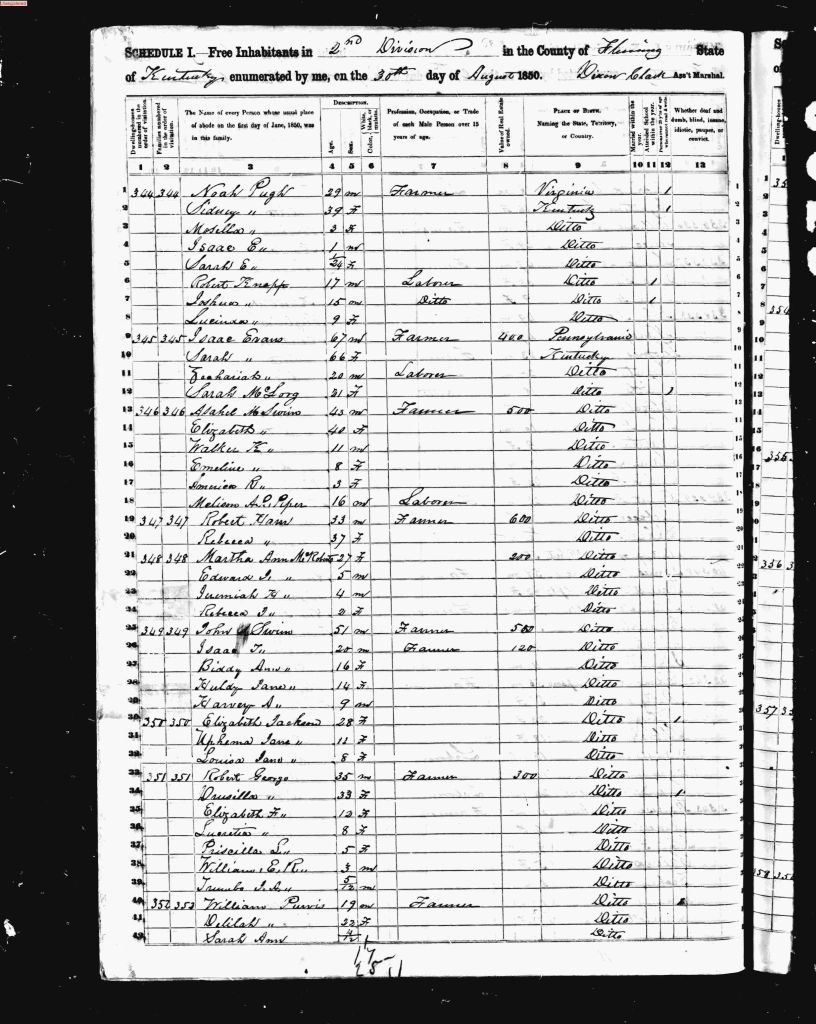 SCHEDULE I.—Free Inhabitants in 2nd Division in the County of Fleming State
of Kentucky enumerated by me, on the 30th day of August 1850. Dixon Clark Ass't Marshal.
Dwelling-houses numbered in the order of visitation.
Families numbered in the order of visitation.
The Name of every Person whose usual place of abode on the first day of June, 1850, was in this family.
DESCRIPTION.
Age.
Sex.
Color, White, black, or mulatto.
Profession, Occupation, or Trade of each Male Person over 15 years of age.
Value of Real Estate owned.
PLACE OF BIRTH. Naming the State, Territory, or Country.
Married within the year.
Attended School within the year.
Whether deaf and dumb, blind, insane, idiotic, pauper, or convict.
1 2 3 4 5 6 7 8 9 10 11 12 13
1 344 344 Noah Pugh 29 m Farmer Virginia 1
2 Sidney " 39 F Kentucky 1
3 Mosella " 3 F Ditto
4 Isaac E " 1 m Ditto
5 Sarah E " 1/24 F Ditto
6 Robert Knapp 17 m Laborer Ditto 1
7 Joshua " 15 m Ditto Ditto 1
8 Lucinda " 9 F Ditto
9 345 345 Isaac Evans 67 m Farmer 400 Pennsylvania
10 Sarah " 66 F Kentucky
11 Zachariah " 20 m Laborer Ditto
12 Sarah 21 F Ditto 1
13 346 346 Asahel McSwim 43 m Farmer 500 Ditto
14 Elizabeth " 40 F Ditto
15 Walker K " 11 m Ditto
16 Emeline " 8 F Ditto
17 America R " 3 F Ditto
18 Piper 16 m Laborer Ditto
19 347 347 Robert Ham 33 m Farmer 600 Ditto
20 Rebecca " 37 F Ditto
21 348 348 Martha Ann McRoberts 27 F 200 Ditto
22 Edward " 5 m Ditto
23 Jeremiah H " 4 m Ditto
24 Rebecca J " 2 F Ditto
25 349 349 John Swim 51 m Farmer 500 Ditto
26 Isaac T " 20 m Farmer 120 Ditto
27 Biddy Ann " 16 F Ditto
28 Huldy Jane " 14 F Ditto
29 Harvey A " 9 m Ditto
30 350 350 Elizabeth Jackson 28 F Ditto 1
31 Uphema Jane " 11 F Ditto
32 Louisa Jane " 8 F Ditto
33 351 351 Robert George 35 m Farmer 300 Ditto
34 Drusilla " 33 F Ditto 1
35 Elizabeth F " 12 F Ditto
36 Lucretia " 8 F Ditto
37 Priscilla L " 5 F Ditto
38 William E. R " 3 m Ditto
39 Trumbo " 5/12 m Ditto
40 352 352 William Purvis 19 m Farmer Ditto
41 Delilah " 22 F Ditto
42 Sarah Ann Ditto
17
25